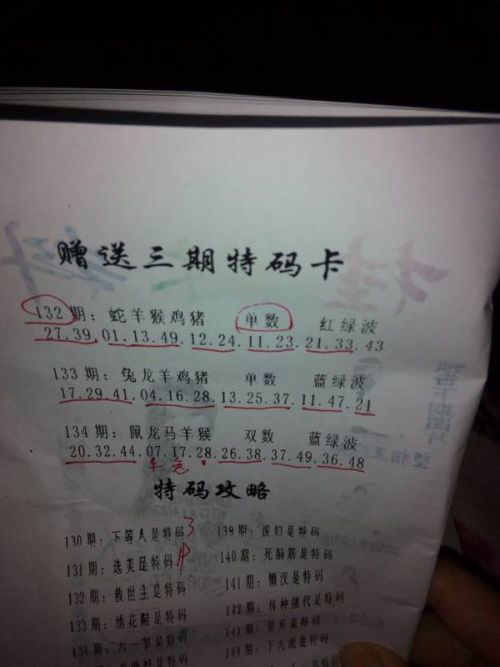 赠送三期特码卡
132期：蛇羊猴鸡猪 单数 红绿波
27.39.01.13.49.12.24.11.23.21.33.43
133期：兔龙羊鸡猪 单数 蓝绿波
17.29.41.04.16.28.13.25.37.11.47.21
134期：鼠龙马羊猴 双数 蓝绿波
20.32.44.07.17.28.26.38.37.49.36.48
特码攻略
130期：下等人是特码 3
139期：波幻是特码
131期：选美是特码
140期：死脑筋是特码
132期：救世主是特码
141期：懒汉是特码
133期：绣花鞋是特码
142期：传种接代是特码
134期：六一节是特码
143期：音乐是特码
144期：下九流是特码